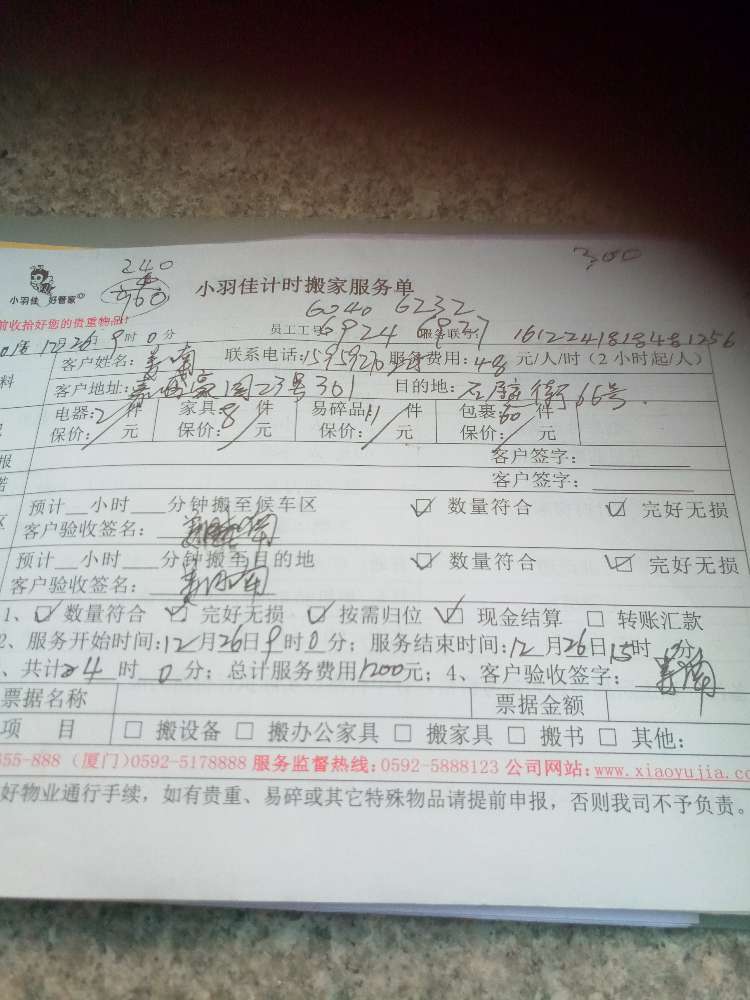 240
300
960
小羽佳 好管家
小羽佳计时搬家服务单
6040 6232
前收拾好您的贵重物品!
员工工号 6924 6827 服务联号: 161224181848 1256
12月26日9时0分
客户姓名: 联系电话: 服务费用:48元/人/时(2小时起/人)
客户地址: 豪园23号301 目的地: 66号
电器:2件 家具:8件 易碎品:11件 包裹:60件
保价: 元 保价: 元 保价: 元 保价: 元
客户签字:
客户签字:
预计__小时___分钟搬至候车区 ☑ 数量符合 ☑ 完好无损
客户验收签名:
预计__小时___分钟搬至目的地 ☑ 数量符合 ☑ 完好无损
客户验收签名:
1、☑ 数量符合 ☑ 完好无损 ☑ 按需归位 ☑ 现金结算 □ 转账汇款
2、服务开始时间:12月26日9时0分; 服务结束时间:12月26日15时 分;
、共计24时0分; 总计服务费用1200元; 4、客户验收签字:
票据名称 票据金额
项 目 □ 搬设备 □ 搬办公家具 □ 搬家具 □ 搬书 □ 其他:
855-888 (厦门)0592-5178888 服务监督热线:0592-5888123 公司网站:www.xiaoyujia.co
好物业通行手续,如有贵重、易碎或其它特殊物品请提前申报,否则我司不予负责。